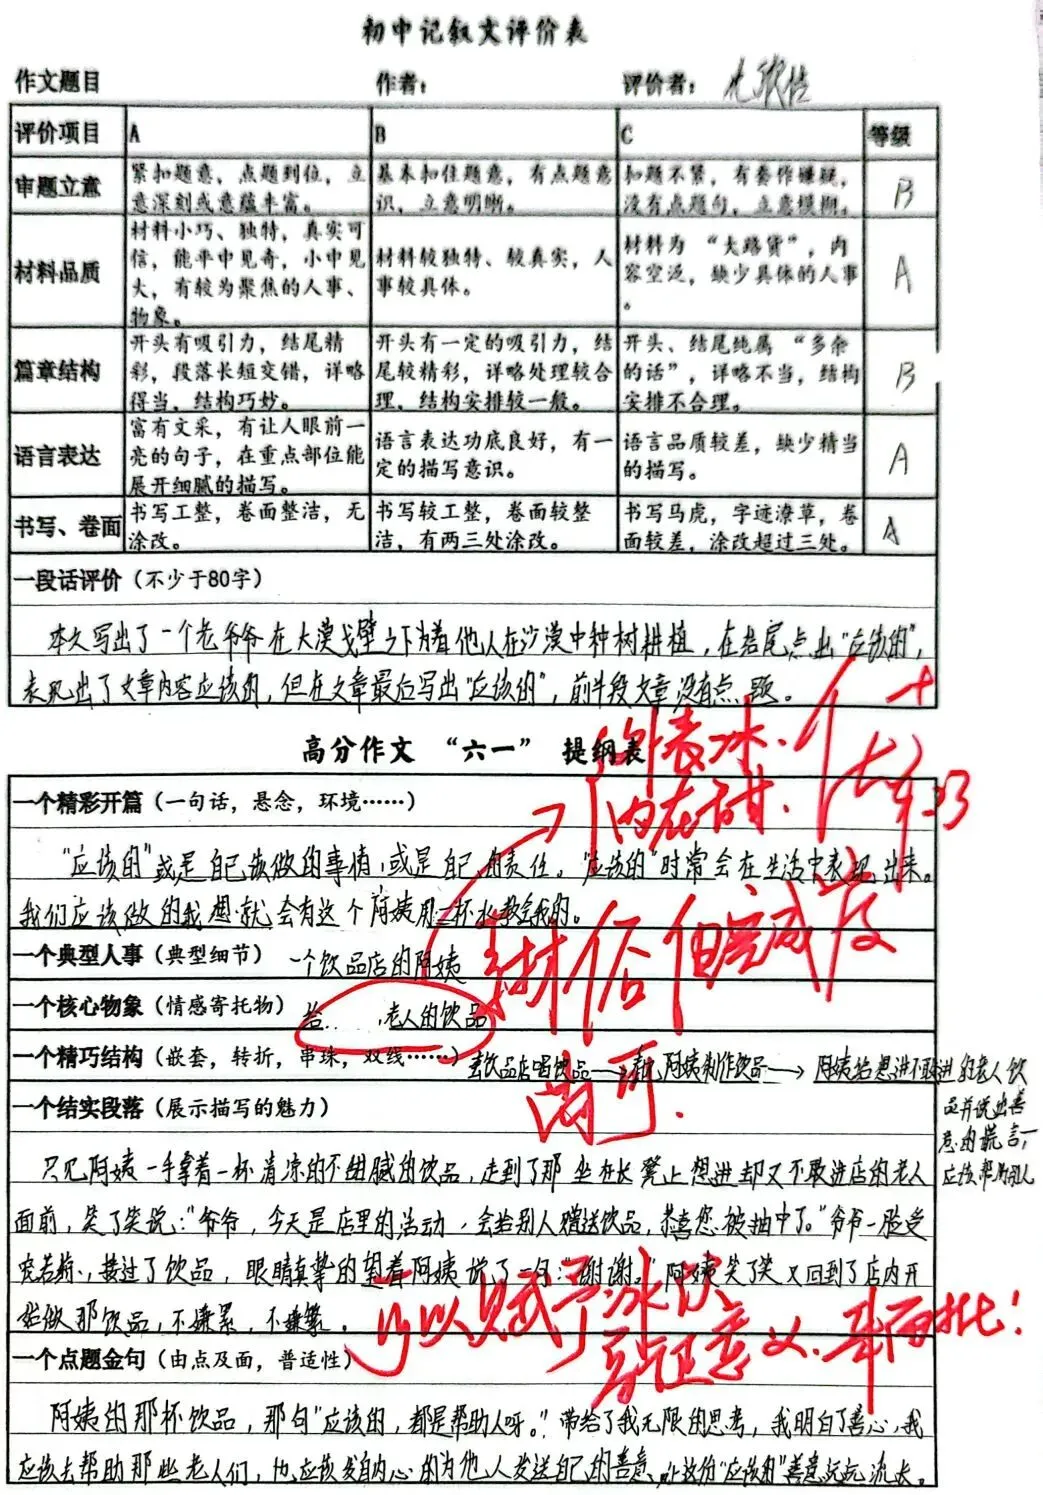 初中记叙文评价表
作文题目 作者： 评价者：
评价项目 A B C 等级
审题立意 紧扣题意，点题到位，立意深刻或意蕴丰富。 基本扣住题意，有点题意识，立意明晰。 扣题不紧，有套作嫌疑，没有点题句，立意模糊。 B
材料品质 材料小巧、独特，真实可信，能平中见奇，小中见大，有较为聚焦的人事、物象。 材料较独特、较真实，人事较具体。 材料为“大路货”，内容空泛，缺少具体的人事。 A
篇章结构 开头有吸引力，结尾精彩，段落长短交错，详略得当，结构巧妙。 开头有一定的吸引力，结尾较精彩，详略处理较合理，结构安排较一般。 开头、结尾纯属“多余的话”，详略不当，结构安排不合理。 B
语言表达 富有文采，有让人眼前一亮的句子，在重点部位能展开细腻的描写。 语言表达功底良好，有一定的描写意识。 语言品质较差，缺少精当的描写。 A
书写、卷面 书写工整，卷面整洁，无涂改。 书写较工整，卷面较整洁，有两三处涂改。 书写马虎，字迹潦草，卷面较差，涂改超过三处。 A
一段话评价（不少于80字）
本文写出了一个老爷爷在大漠戈壁之下为着他人在沙漠中种树耕植，在结尾点出“应该的”，
表现出了文章内容应该的，但在文章最后写出“应该的”，前半段文章没有点题。
高分作文 “六一” 提纲表
外表冰．
内在甜．
一个精彩开篇（一句话，悬念，环境……）
“应该的”或是自己该做的事情，或是自己的责任。“应该的”时常会在生活中表现出来。
我们应该做的我想就会有这个阿姨用一杯水教会我的。
一个典型人事（典型细节） 一个饮品店的阿姨
素材俗 但完成度
尚可．
一个核心物象（情感寄托物） 给 老人的饮品
一个精巧结构（嵌套，转折，串珠，双线……）去饮品店喝饮品→看见阿姨制作饮品→阿姨给想进不敢进的老人饮
品并说出善
意的谎言，
应该帮助别人
一个结实段落（展示描写的魅力）
只见阿姨一手拿着一杯清凉的不细腻的饮品，走到了那坐在长凳上想进却又不敢进店的老人
面前，笑了笑说：“爷爷，今天是店里的活动，会给别人赠送饮品，恭喜您被抽中了。”爷爷一脸受
宠若惊，接过了饮品，眼睛真挚的望着阿姨说了一句：“谢谢。”阿姨笑了笑又回到了店内开
始做那饮品，不嫌累，不嫌繁。
可以赋予冰饮
一个点题金句（由点及面，普适性）
阿姨的那杯饮品，那句“应该的，都是帮助人呀。”带给了我无限的思考，我明白了善心，我
应该去帮助那些老人们，也应该发自内心的为他人发送自己的善意，让这份“应该的”善意远远流长。